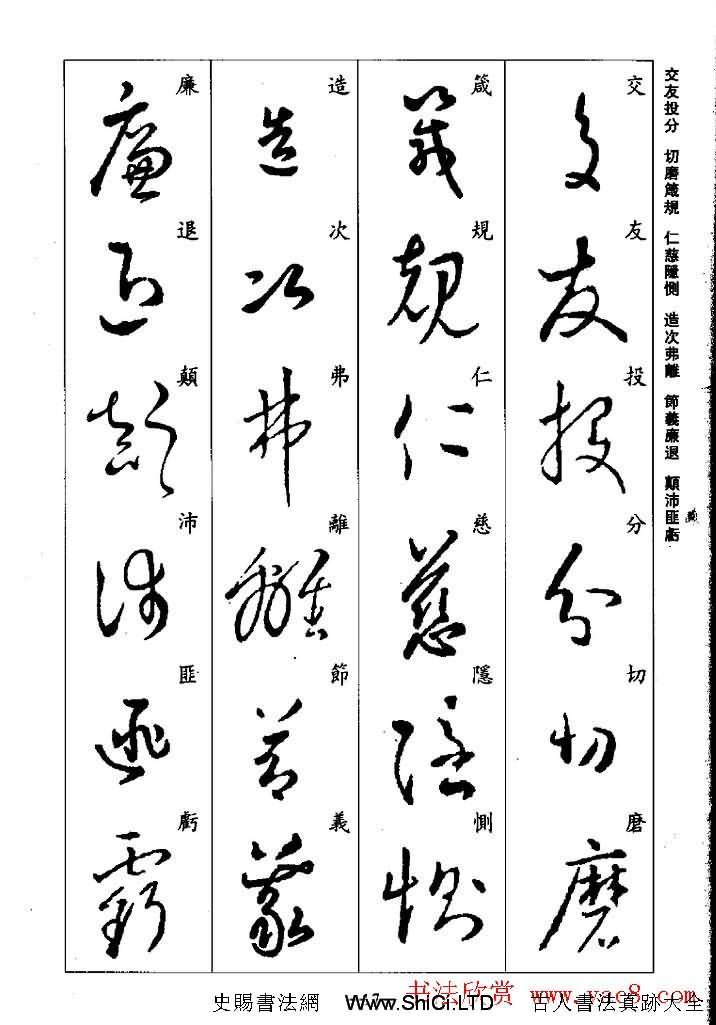 交友投分 切磨箴規 仁慈隱惻 造次弗離 節義廉退 顛沛匪虧
交友投分切磨
箴規仁慈隱惻
造次弗離節義
廉退顛沛匪虧
书法欣赏 www.yac8.com
史賜書法網 www.ShiCi.LTD 古人書法真跡大全